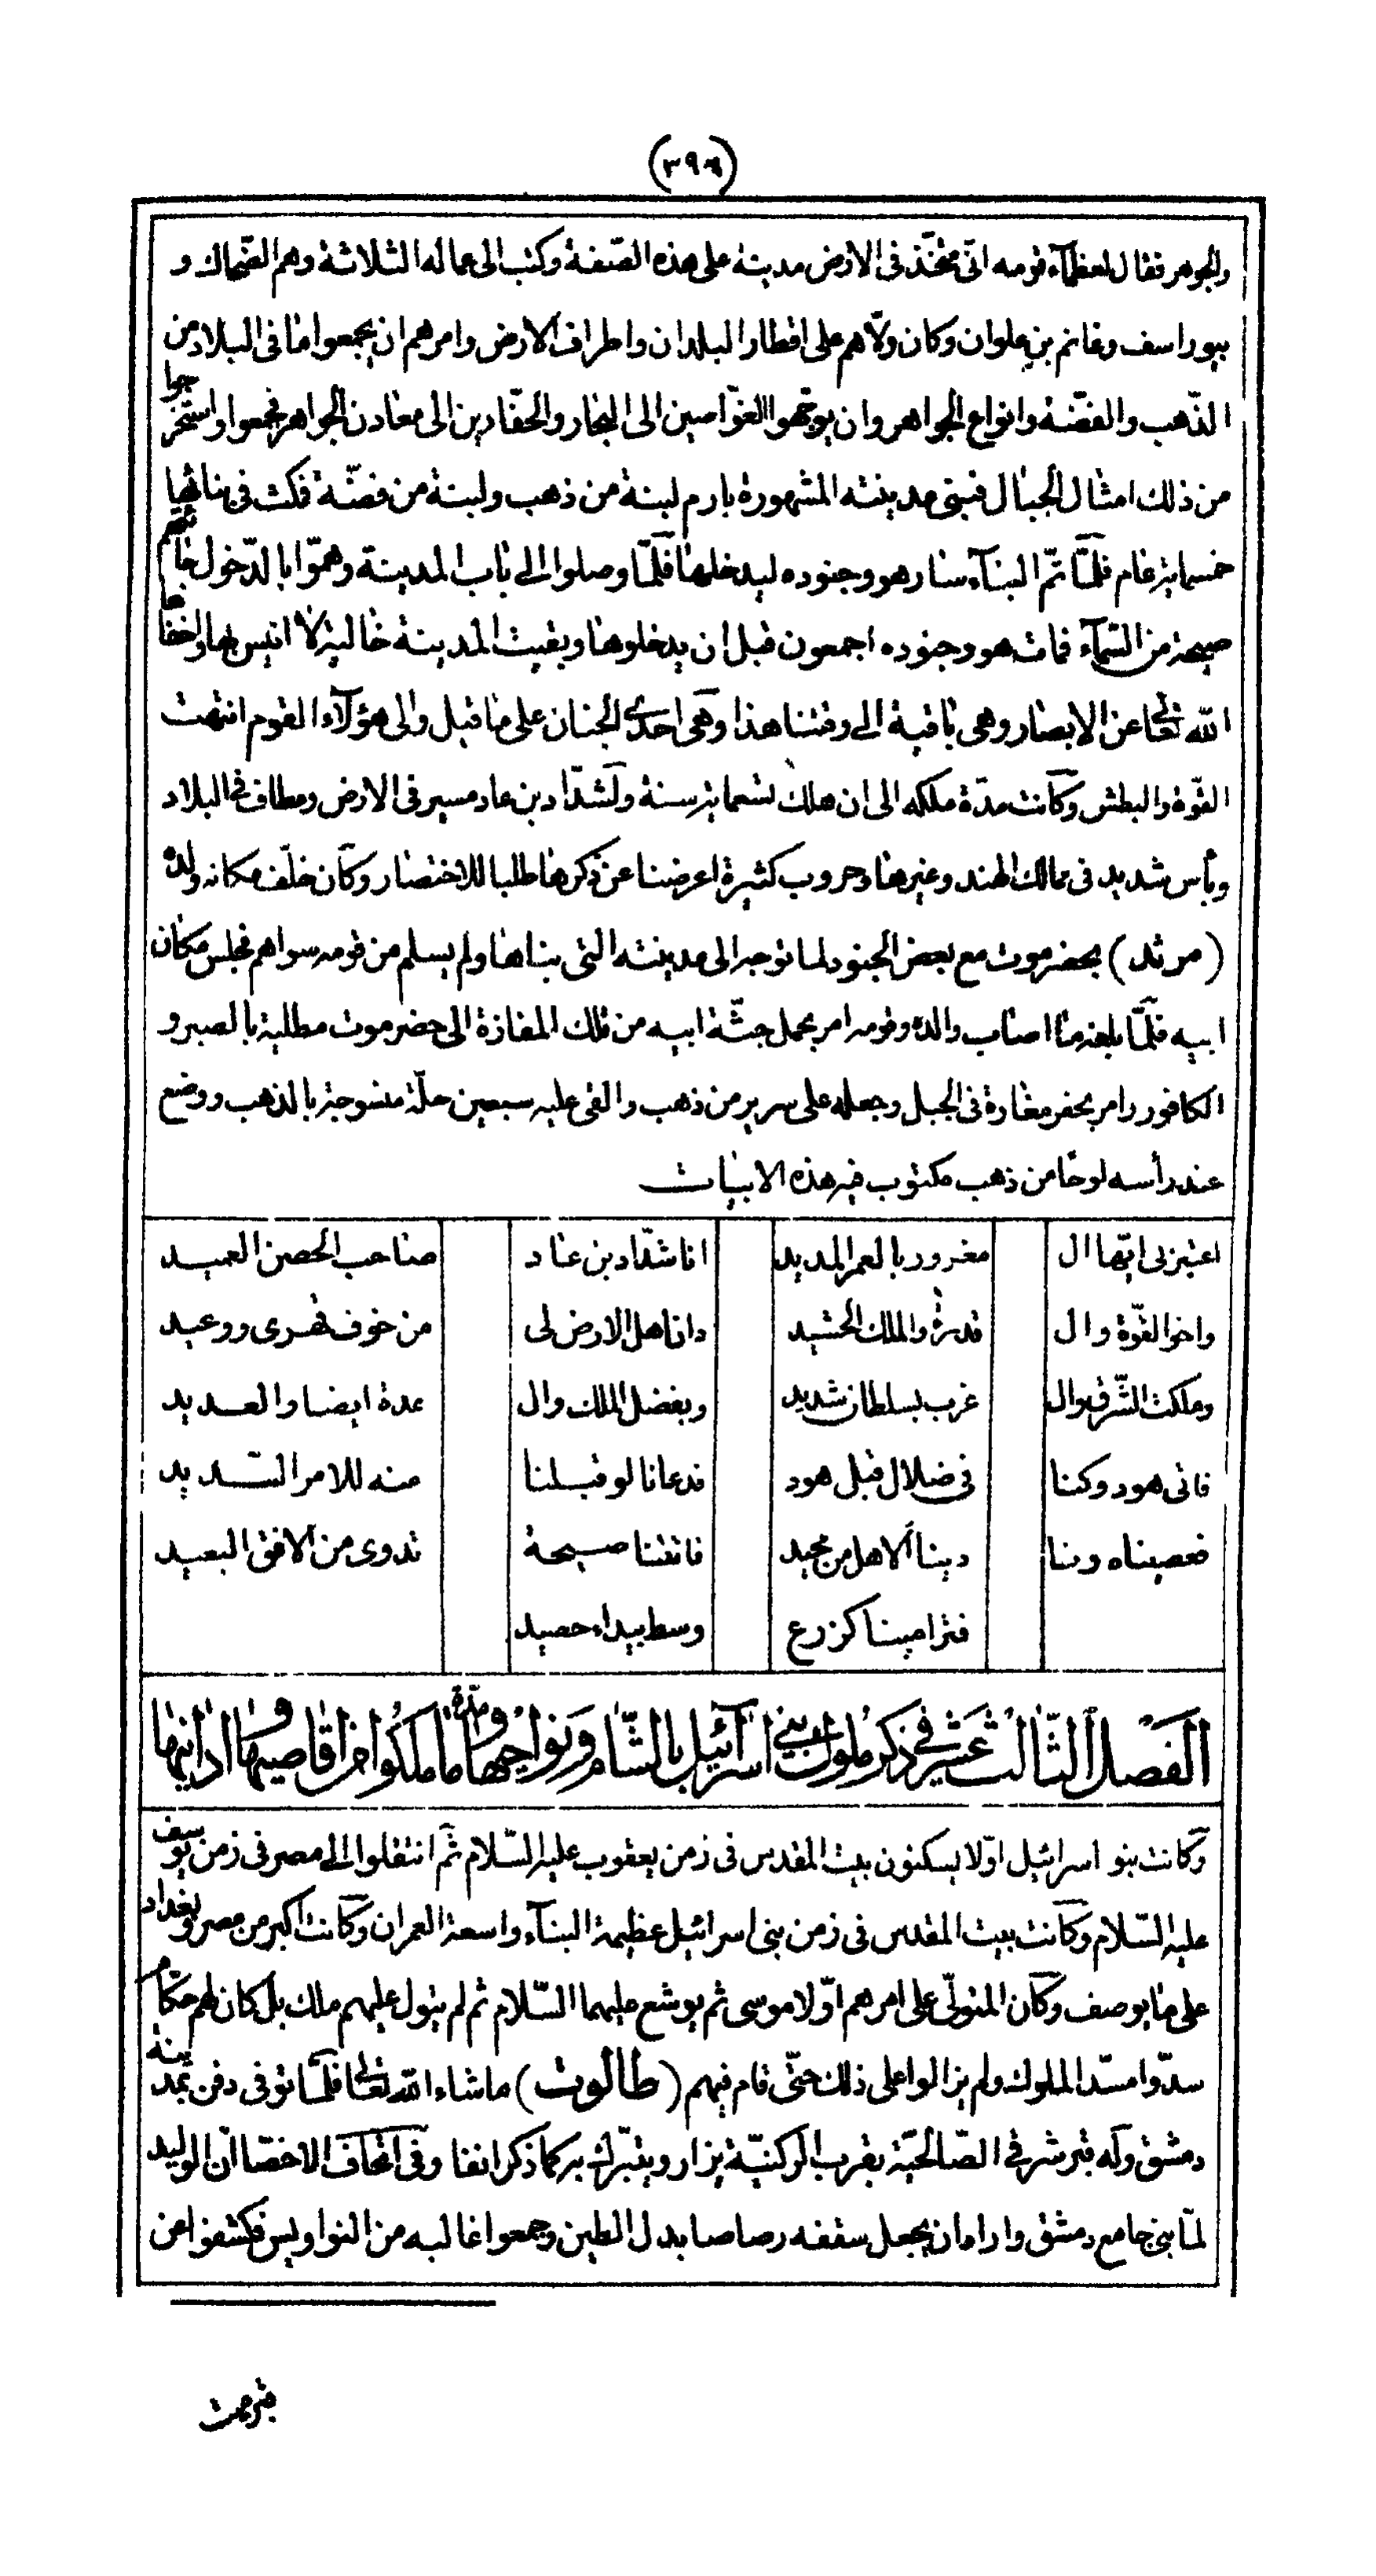 (٣٩٦)
والجوهر فقال لعظمآء قومه انّى متخّذ فى الارض مدينة على هذه الصّفة وكتب الى عماله الثلاثة وهم الضّحاك و
بيوراسف وغانم بن علوان وكان ولّاهم على اقطار البلدان واطراف الارض وامرهم ان يجمعوا ما فى البلاد من
الذّهب والفضّة وانواع الجواهر وان يوجّهوا الغوّاصين الى البحار والحفّارين الى معادن الجواهر فجمعوا واستخرجوا
من ذلك امثال الجبال فبنى مدينته المشهورة بارم لبنة من ذهب ولبنة من فضّة فمكث فى بنائها
خمسماية عام فلمّا تمّ البنآء سار هو وجنوده ليدخلها فلمّا وصلوا الى باب المدينة وهموّا بالدّخول جاءتهم
صيحة من السّمآء فمات هو وجنوده اجمعون قبل ان يدخلوها وبقيت المدينة خالية لا انيس بها واخفاها
الله تعالى عن الابصار وهى باقية الى وقتنا هذا وهى احدى الجنان على ما قيل والى هؤلآء القوم انتهت
القوّة والبطش وكانت مدّة ملكه الى ان هلك تسعماية سنة ولشدّاد بن عاد مسير فى الارض ومطاف فى البلاد
وبأس شديد فى ممالك الهند وغيرها وحروب كثيرة اعرضنا عن ذكرها طلبا للاختصار وكان خلّف مكانه ولده
(مرثد) بحضرموت مع بعض الجنود لما توجه الى مدينته التى بناها ولم يسلم من قومه سواهم فجلس مكان
ابيه فلمّا بلغه ما اصاب والده وقومه امر بحمل جثّة ابيه من تلك المفازة الى حضرموت مطلية بالصبر و
الكافور وامر بحفر مغارة فى الجبل وجعله على سرير من ذهب والقى عليه سبعين حلّة منسوجة بالذهب ووضع
عند رأسه لوحا من ذهب مكتوب فيه هذه الابيات
اعتبر بى ايّها ال مغرور بالعمر المديد انا شدّاد بن عاد صاحب الحصن العميد
واخو القوّة وال قدرة والملك الحشيد دانا هل الارض لى من خوف قهرى ووعيد
وملكت الشّرق وال غرب بسلطان شديد وبفضل الملك وال عدة ايضا والعديد
فاتى هود وكنا فى ضلال قبل هود فدعانا لو قبلنا منه للامر السّديد
فعصيناه وننا دينا الاهل من محيد فاتتنا صيحة تدوى من الافق البعيد
فترامينا كزرع وسط بيداء حصيد
الفصل الثّالث عشر فى ذكر ملوك بنى اسرآئيل بالشّام ونواحيها ومدة ما ملكوا من اقاصيها وادانيها
وكانت بنو اسرائيل اوّلا يسكنون بيت المقدس فى زمن يعقوب عليه السّلام ثم انتقلوا الى مصر فى زمن يوسف
عليه السّلام وكانت بيت المقدس فى زمن بنى اسرائيل عظيمة البنآء واسعة العمران وكانت اكبر من مصر وبغداد
على ما يوصف وكان المتولّى على امرهم اوّلا موسى ثم يوشع عليهما السّلام ثم لم يتول عليهم ملك بل كان لهم حكام
سدّوا مسدّ الملوك ولم يزالوا على ذلك حتّى قام فيهم (طالوت) ما شاء الله تعالى فلمّا توفى دفن بمدينة
دمشق وله قبر شرقى الصّالحيّة بقرب الركنيّة يزار ويتبّرك به كما ذكر انفا وفى اتحاف الاخصّا انّ الوليد
لمّا بنى جامع دمشق واراد ان يجعل سقفه رصاصا بدل الطين وجمعوا غالبه من النواويس فكشفوا عن
قبر ميت